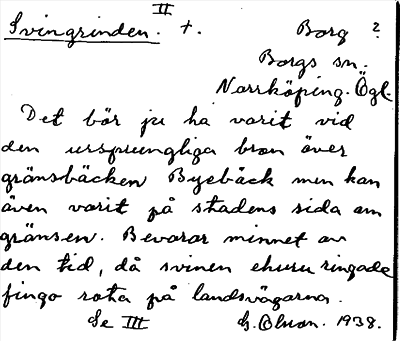 II
Svingrinden. +. Borg ?
Borgs sn.
Norrköping. Ögl.
Det bör ju ha varit vid
den ursprungliga bron över
gränsbäcken Byebäck men kan
även varit på stadens sida om
gränsen. Bevarar minnet av
den tid, då svinen ehuru ringade
fingo rota på landsvägarna.
Se III G. Olson. 1938.